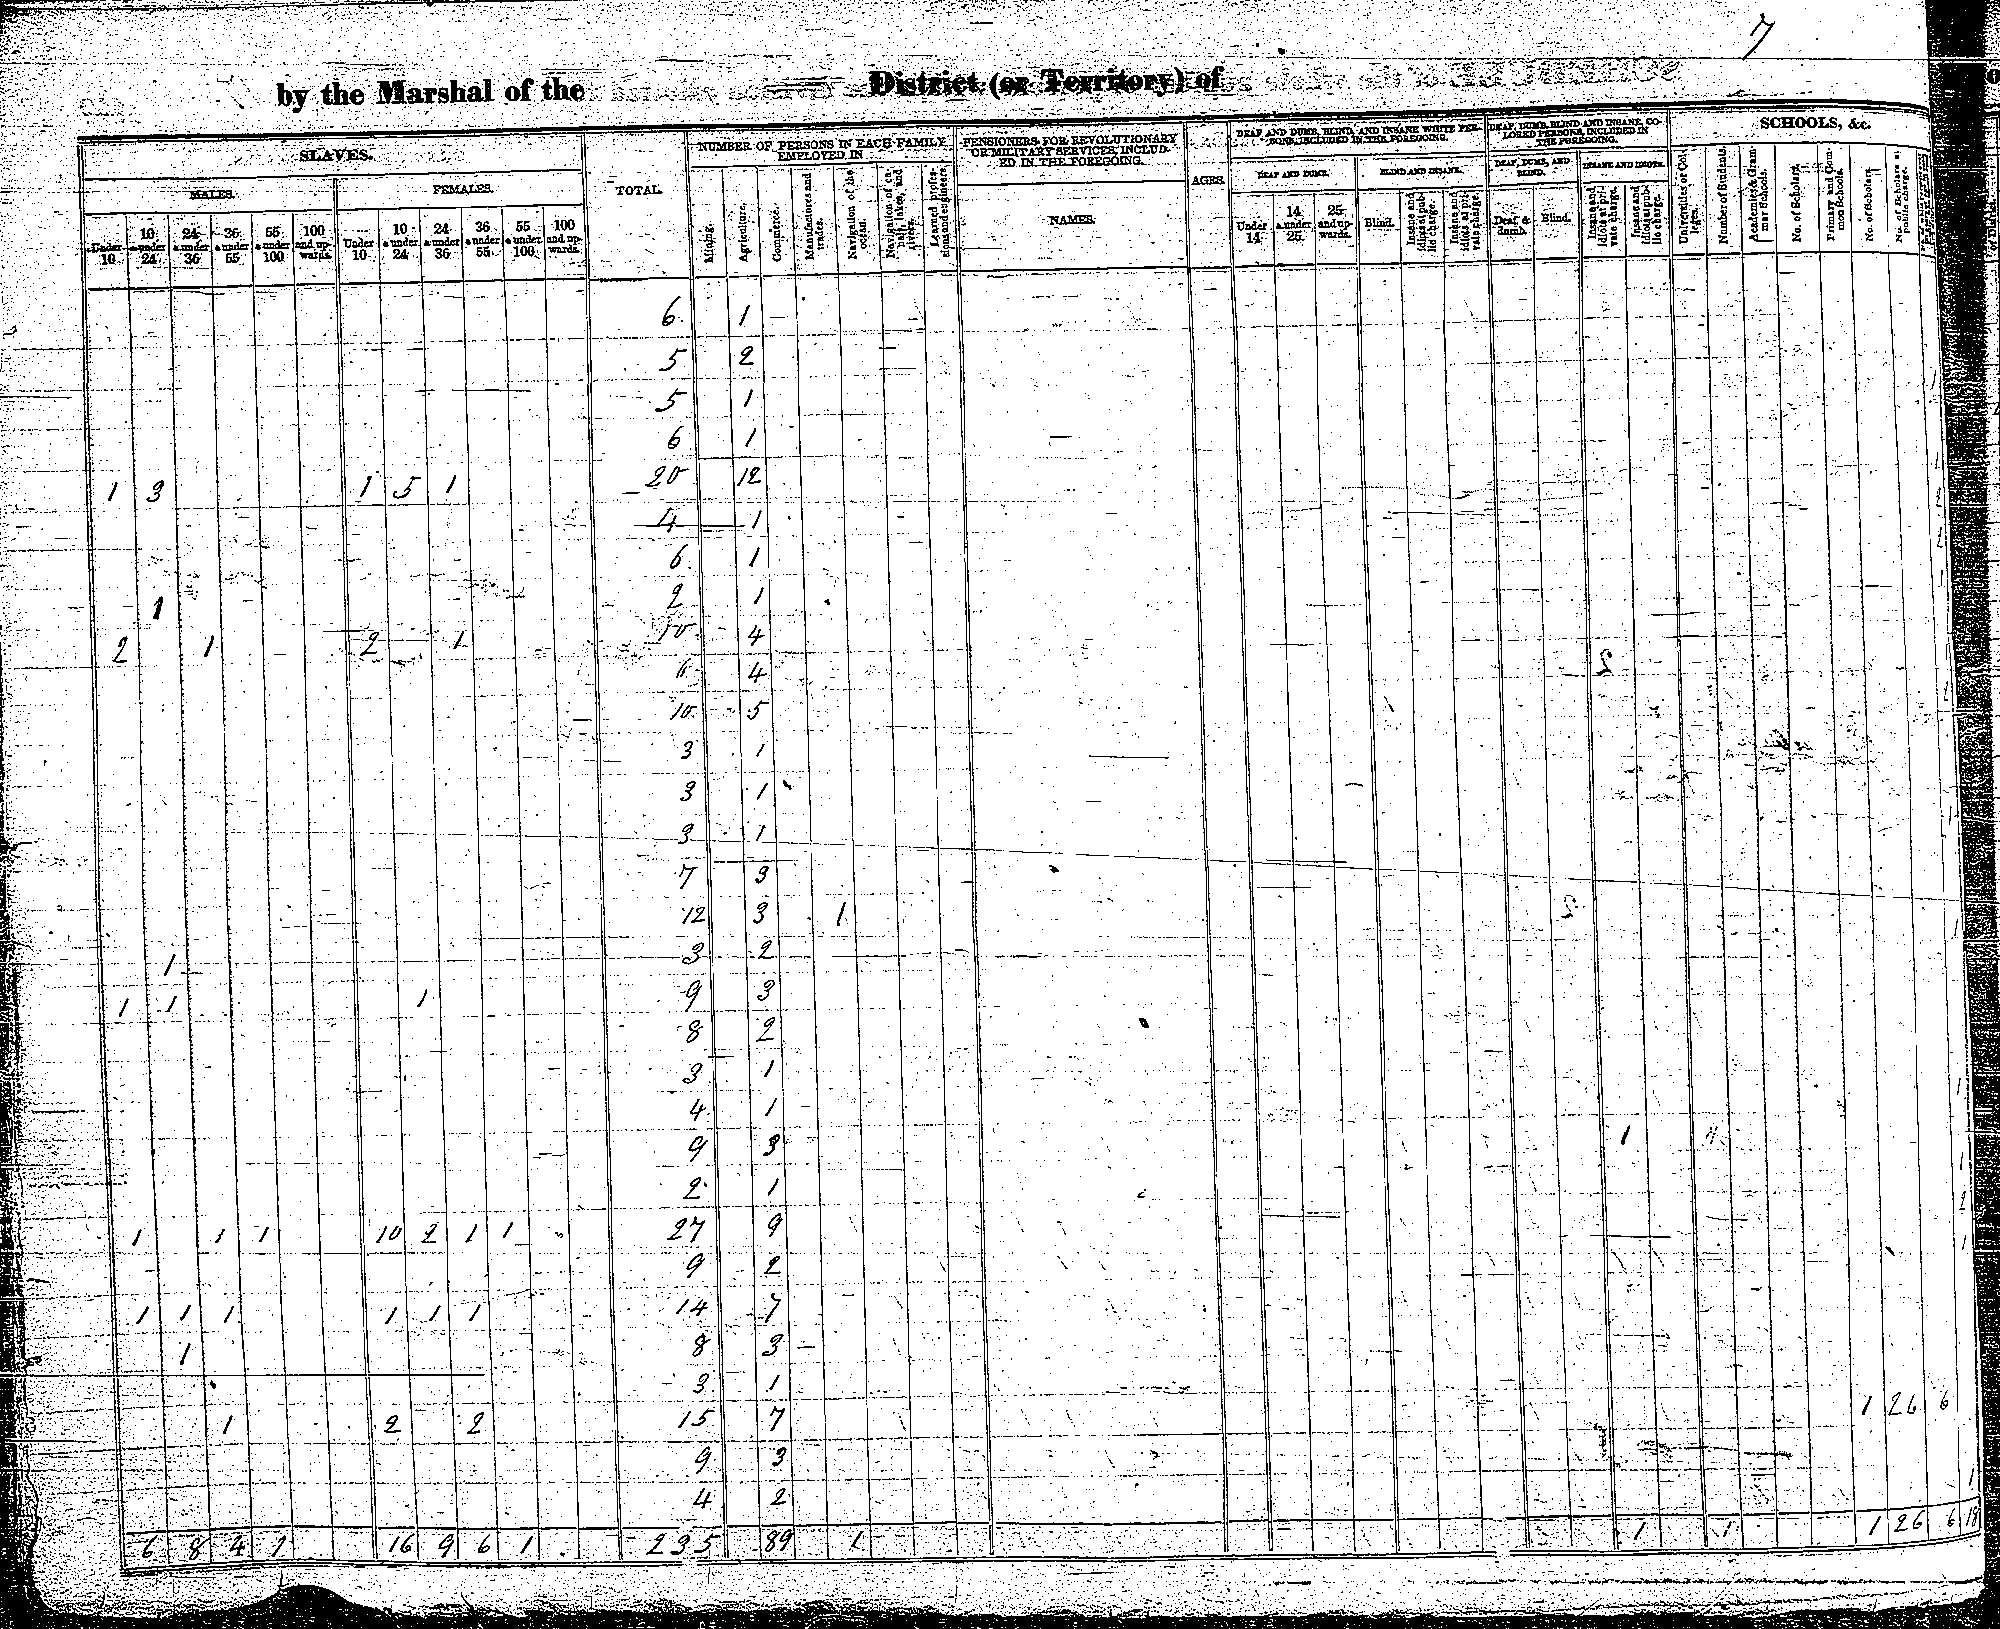 7
by the Marshal of the District (or Territory) of
SLAVES. TOTAL. NUMBER OF PERSONS IN EACH FAMILY EMPLOYED IN PENSIONERS FOR REVOLUTIONARY OR MILITARY SERVICES, INCLUDED IN THE FOREGOING. AGES. DEAF AND DUMB, BLIND, AND INSANE WHITE PERSONS, INCLUDED IN THE FOREGOING. DEAF, DUMB, BLIND AND INSANE, COLORED PERSONS, INCLUDED IN THE FOREGOING. SCHOOLS, &c.
MALES. FEMALES. NAMES. DEAF AND DUMB. BLIND AND INSANE. DEAF, DUMB, AND BLIND. INSANE AND IDIOTS.
Under 10 10 & under 24 24 & under 36 36 & under 55 55 & under 100 100 and upwards. Under 10 10 & under 24 24 & under 36 36 & under 55. 55 & under 100 100 and upwards. Mining. Agriculture. Commerce. Manufactures and trades. Navigation of the ocean. Navigation of canals, lakes, and rivers. Learned professions and engineers. Under 14. 14 & under 25. 25 and upwards. Blind. Insane and idiots at public charge. Insane and idiots at private charge. Deaf & dumb. Blind. Insane and idiots at private charge. Insane and idiots at public charge. Universities or Colleges. Number of Students. Academies & Grammar Schools. No. of Scholars. Primary and Common Schools. No. of Scholars. No. of Scholars at public charge.
6 1
5 2
5 1
6 1
1 3 1 5 1 20 12
4 1
6 1
1 2 1
2 1 2 1 10 4
6 4
10 5
3 1
3 1
3 1
7 3
12 3 1
1 3 2
1 1 1 9 3
8 2
3 1
4 1
9 3 1
2 1
1 1 1 10 2 1 1 27 9
9 2
1 1 1 1 1 1 14 7
1 8 3
3 1
1 2 2 15 7 1 26 6
9 3
4 2
6 8 4 1 16 9 6 1 235 89 1 1 1 1 26 6 18